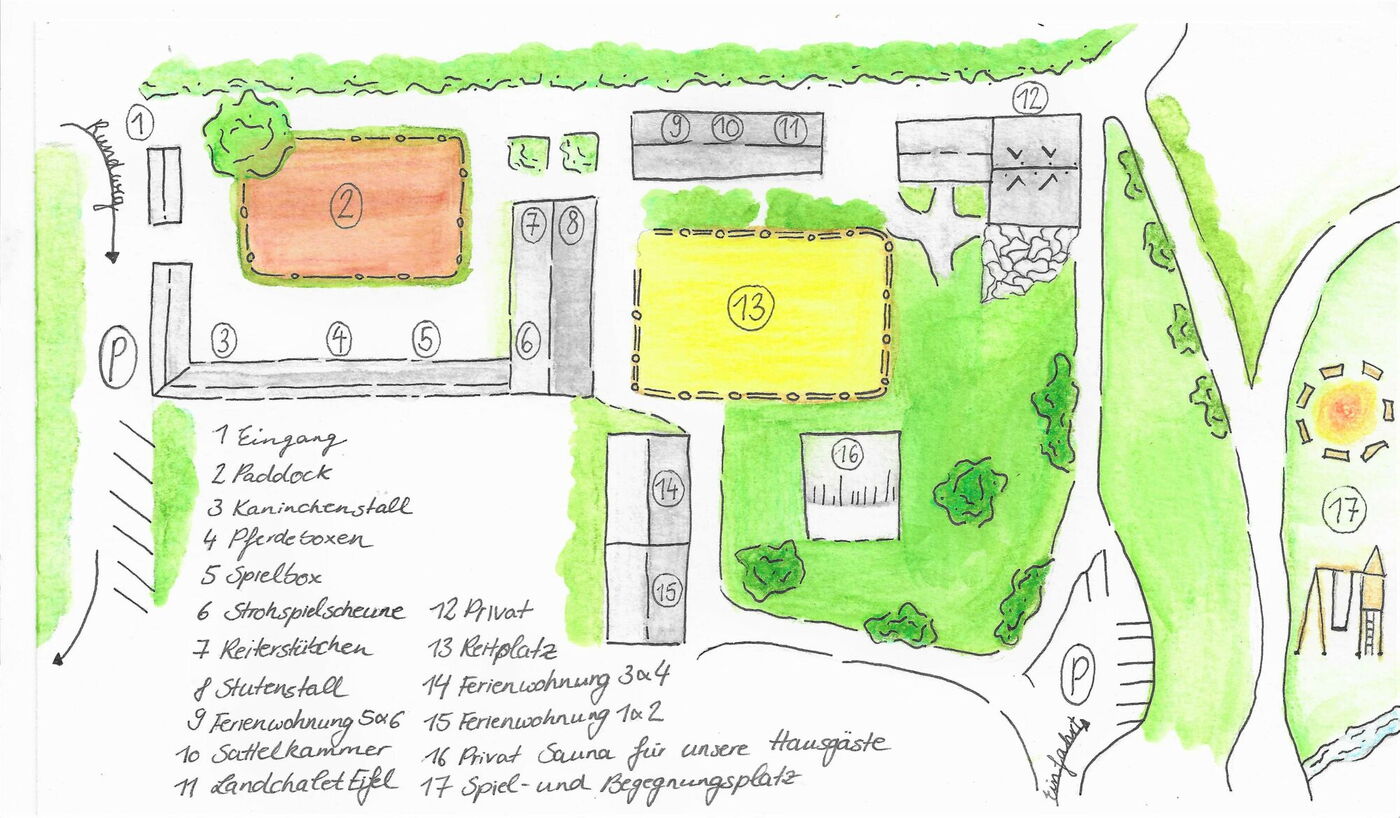 12
1
9 10 11
Rundweg
2
7 8
13
P
3 4 5 6
16
14
17
15
P
Einfahrt
1 Eingang
2 Paddock
3 Kaninchenstall
4 Pferdeboxen
5 Spielbox
6 Strohspielscheune
7 Reiterstübchen
8 Stutenstall
9 Ferienwohnung 5&6
10 Sattelkammer
11 Landchalet Eifel
12 Privat
13 Reitplatz
14 Ferienwohnung 3&4
15 Ferienwohnung 1&2
16 Privat Sauna für unsere Hausgäste
17 Spiel- und Begegnungsplatz